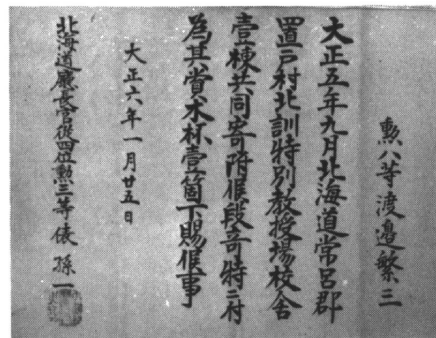 勲八等渡邉繁三
大正五年九月北海道常呂郡
置戸村北訓特別教授場校舎
壹棟共同寄附候段奇特ニ付
為其賞木杯壹箇下賜候事
大正六年一月廿五日
北海道廳長官從四位勲三等俵孫一